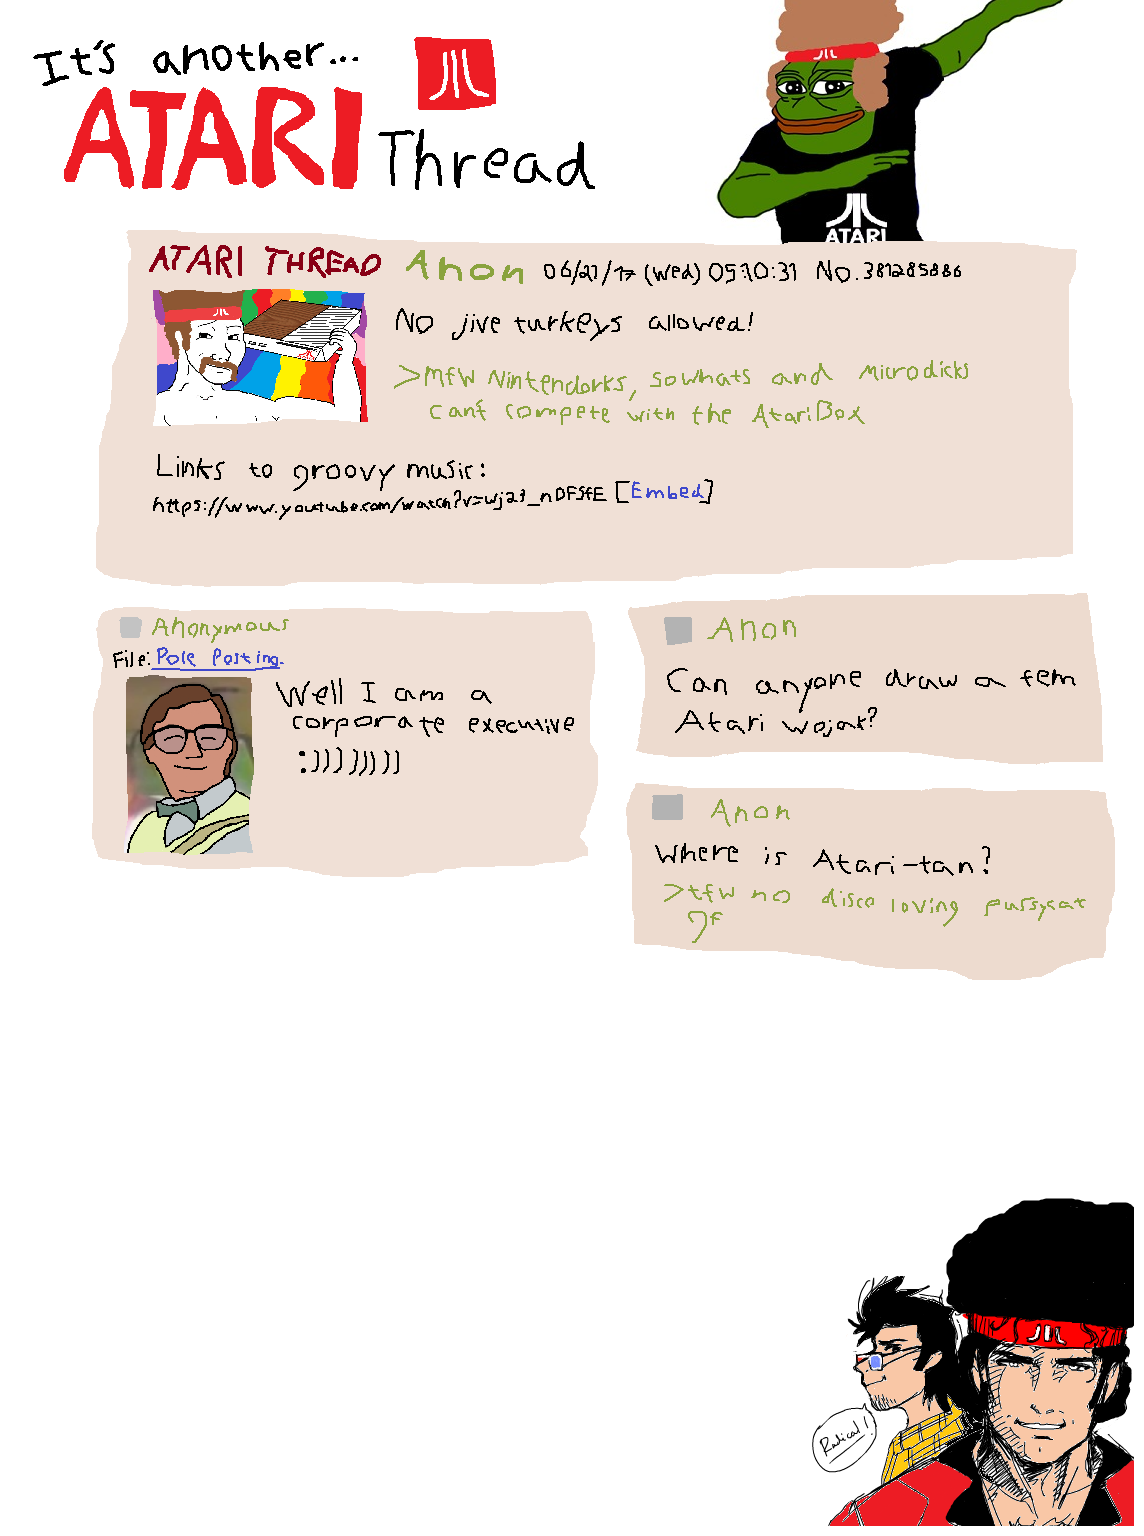 It's another...
ATARI Thread
ATARI
ATARI THREAD Anon 06/21/17 (Wed) 05:10:31 No.381285886
No jive turkeys allowed!
>mfw Nintendorks, sowhats and Microdicks
can't compete with the AtariBox
Links to groovy music:
https://www.youtube.com/watch?v=wj23_nDFSfE [Embed]
Anonymous
File: Pole Posting.
Well I am a
corporate executive
:))))))))
Anon
Can anyone draw a fem
Atari wojak?
Anon
Where is Atari-tan?
>tfw no disco loving pussycat
gf
Radical!